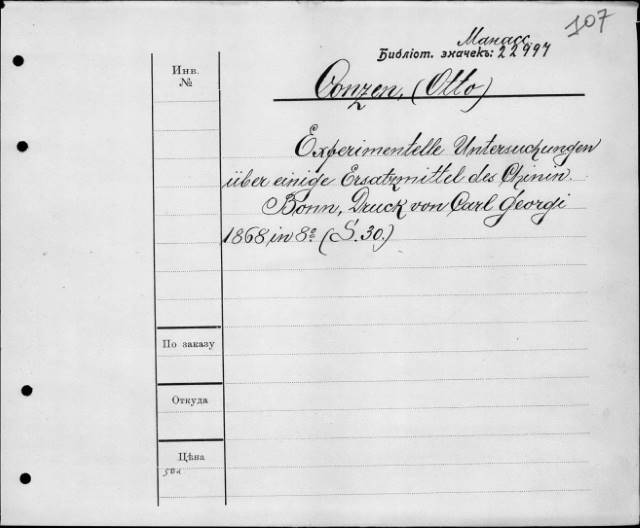 107
Манасс.
Библіот. значекъ: 22997
Инв.
№
Conzen, (Otto)
Experimentelle Untersuchungen
über einige Ersatzmittel des Chinin.
Bonn, Druck von Carl Georgi
1868, in 8º (S. 30.)
По заказу
Откуда
Цѣна